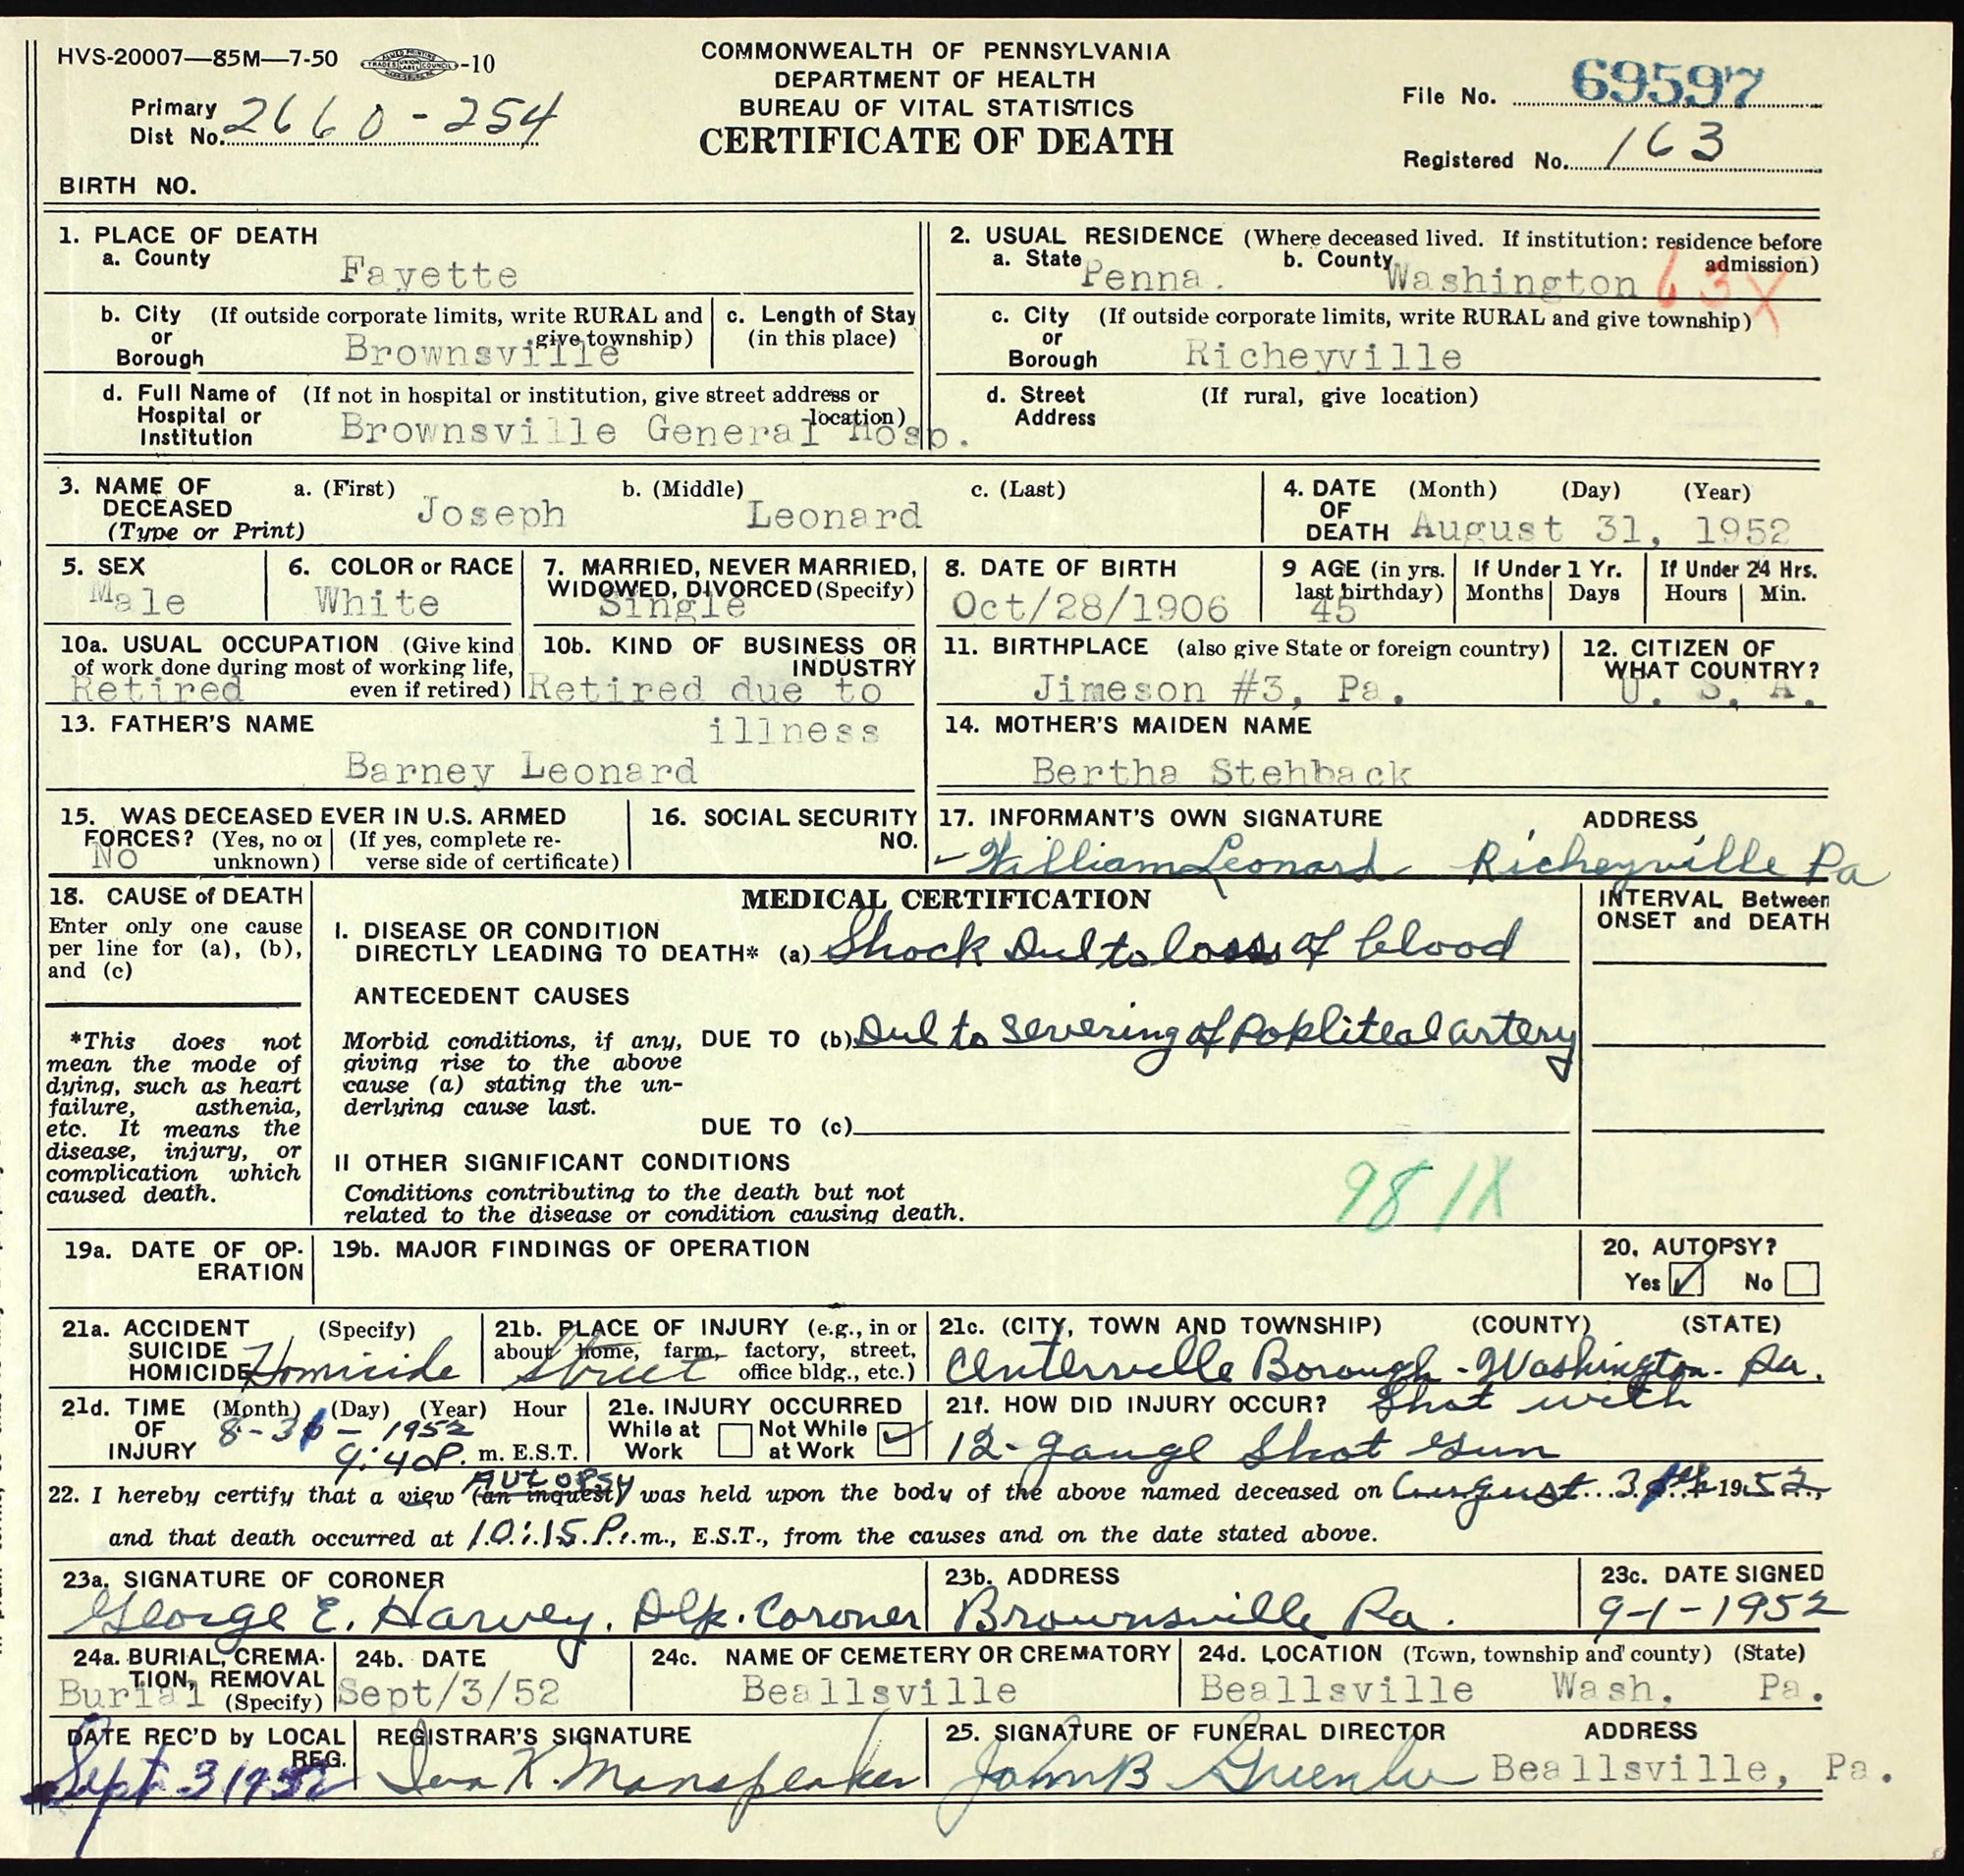 HVS-20007—85M—7-50 -10
COMMONWEALTH OF PENNSYLVANIA
DEPARTMENT OF HEALTH
BUREAU OF VITAL STATISTICS
CERTIFICATE OF DEATH
Primary Dist No. 2660-254
File No. 69597
Registered No. 163
BIRTH NO.
1. PLACE OF DEATH
a. County Fayette
b. City or Borough (If outside corporate limits, write RURAL and give township) Brownsville
c. Length of Stay (in this place)
d. Full Name of Hospital or Institution (If not in hospital or institution, give street address or location) Brownsville General Hosp.
2. USUAL RESIDENCE (Where deceased lived. If institution: residence before admission)
a. State Penna. b. County Washington 63X
c. City or Borough (If outside corporate limits, write RURAL and give township) Richeyville
d. Street Address (If rural, give location)
3. NAME OF DECEASED (Type or Print) a. (First) Joseph b. (Middle) Leonard c. (Last)
4. DATE OF DEATH (Month) (Day) (Year) August 31, 1952
5. SEX Male
6. COLOR or RACE White
7. MARRIED, NEVER MARRIED, WIDOWED, DIVORCED (Specify) Single
8. DATE OF BIRTH Oct/28/1906
9 AGE (in yrs. last birthday) 45
If Under 1 Yr. Months Days
If Under 24 Hrs. Hours Min.
10a. USUAL OCCUPATION (Give kind of work done during most of working life, even if retired) Retired
10b. KIND OF BUSINESS OR INDUSTRY Retired due to illness
11. BIRTHPLACE (also give State or foreign country) Jimeson #3, Pa.
12. CITIZEN OF WHAT COUNTRY? U. S. A.
13. FATHER'S NAME Barney Leonard
14. MOTHER'S MAIDEN NAME Bertha Stehback
15. WAS DECEASED EVER IN U.S. ARMED FORCES? (Yes, no or unknown) No (If yes, complete reverse side of certificate)
16. SOCIAL SECURITY NO.
17. INFORMANT'S OWN SIGNATURE ADDRESS
William Leonard Richeyville Pa
18. CAUSE of DEATH
Enter only one cause
per line for (a), (b),
and (c)
*This does not
mean the mode of
dying, such as heart
failure, asthenia,
etc. It means the
disease, injury, or
complication which
caused death.
MEDICAL CERTIFICATION
INTERVAL Between
ONSET and DEATH
I. DISEASE OR CONDITION
DIRECTLY LEADING TO DEATH* (a) Shock Due to loss of blood
ANTECEDENT CAUSES
Morbid conditions, if any,
giving rise to the above
cause (a) stating the un-
derlying cause last.
DUE TO (b) Due to severing of Popliteal artery
DUE TO (c)
II OTHER SIGNIFICANT CONDITIONS
Conditions contributing to the death but not
related to the disease or condition causing death.
981X
19a. DATE OF OPERATION
19b. MAJOR FINDINGS OF OPERATION
20. AUTOPSY?
Yes No
21a. ACCIDENT SUICIDE HOMICIDE (Specify) Homicide
21b. PLACE OF INJURY (e.g., in or about home, farm, factory, street, office bldg., etc.) Street
21c. (CITY, TOWN AND TOWNSHIP) (COUNTY) (STATE)
Centerville Borough - Washington - Pa.
21d. TIME OF INJURY (Month) (Day) (Year) Hour 8-31-1952 9:40 P. m. E.S.T.
21e. INJURY OCCURRED While at Work Not While at Work
21f. HOW DID INJURY OCCUR? Shot with
12-gauge Shot Gun
22. I hereby certify that a view (an inquest) AUTOPSY was held upon the body of the above named deceased on August 31st 1952,
and that death occurred at 10:15 P. m., E.S.T., from the causes and on the date stated above.
23a. SIGNATURE OF CORONER George E. Harvey, Dep. Coroner
23b. ADDRESS Brownsville Pa.
23c. DATE SIGNED 9-1-1952
24a. BURIAL, CREMATION, REMOVAL (Specify) Burial
24b. DATE Sept/3/52
24c. NAME OF CEMETERY OR CREMATORY Beallsville
24d. LOCATION (Town, township and county) (State) Beallsville Wash. Pa.
DATE REC'D by LOCAL REG. Sept 3 1952
REGISTRAR'S SIGNATURE Iva K. Manspeaker
25. SIGNATURE OF FUNERAL DIRECTOR ADDRESS
John B Greenlee Beallsville, Pa.